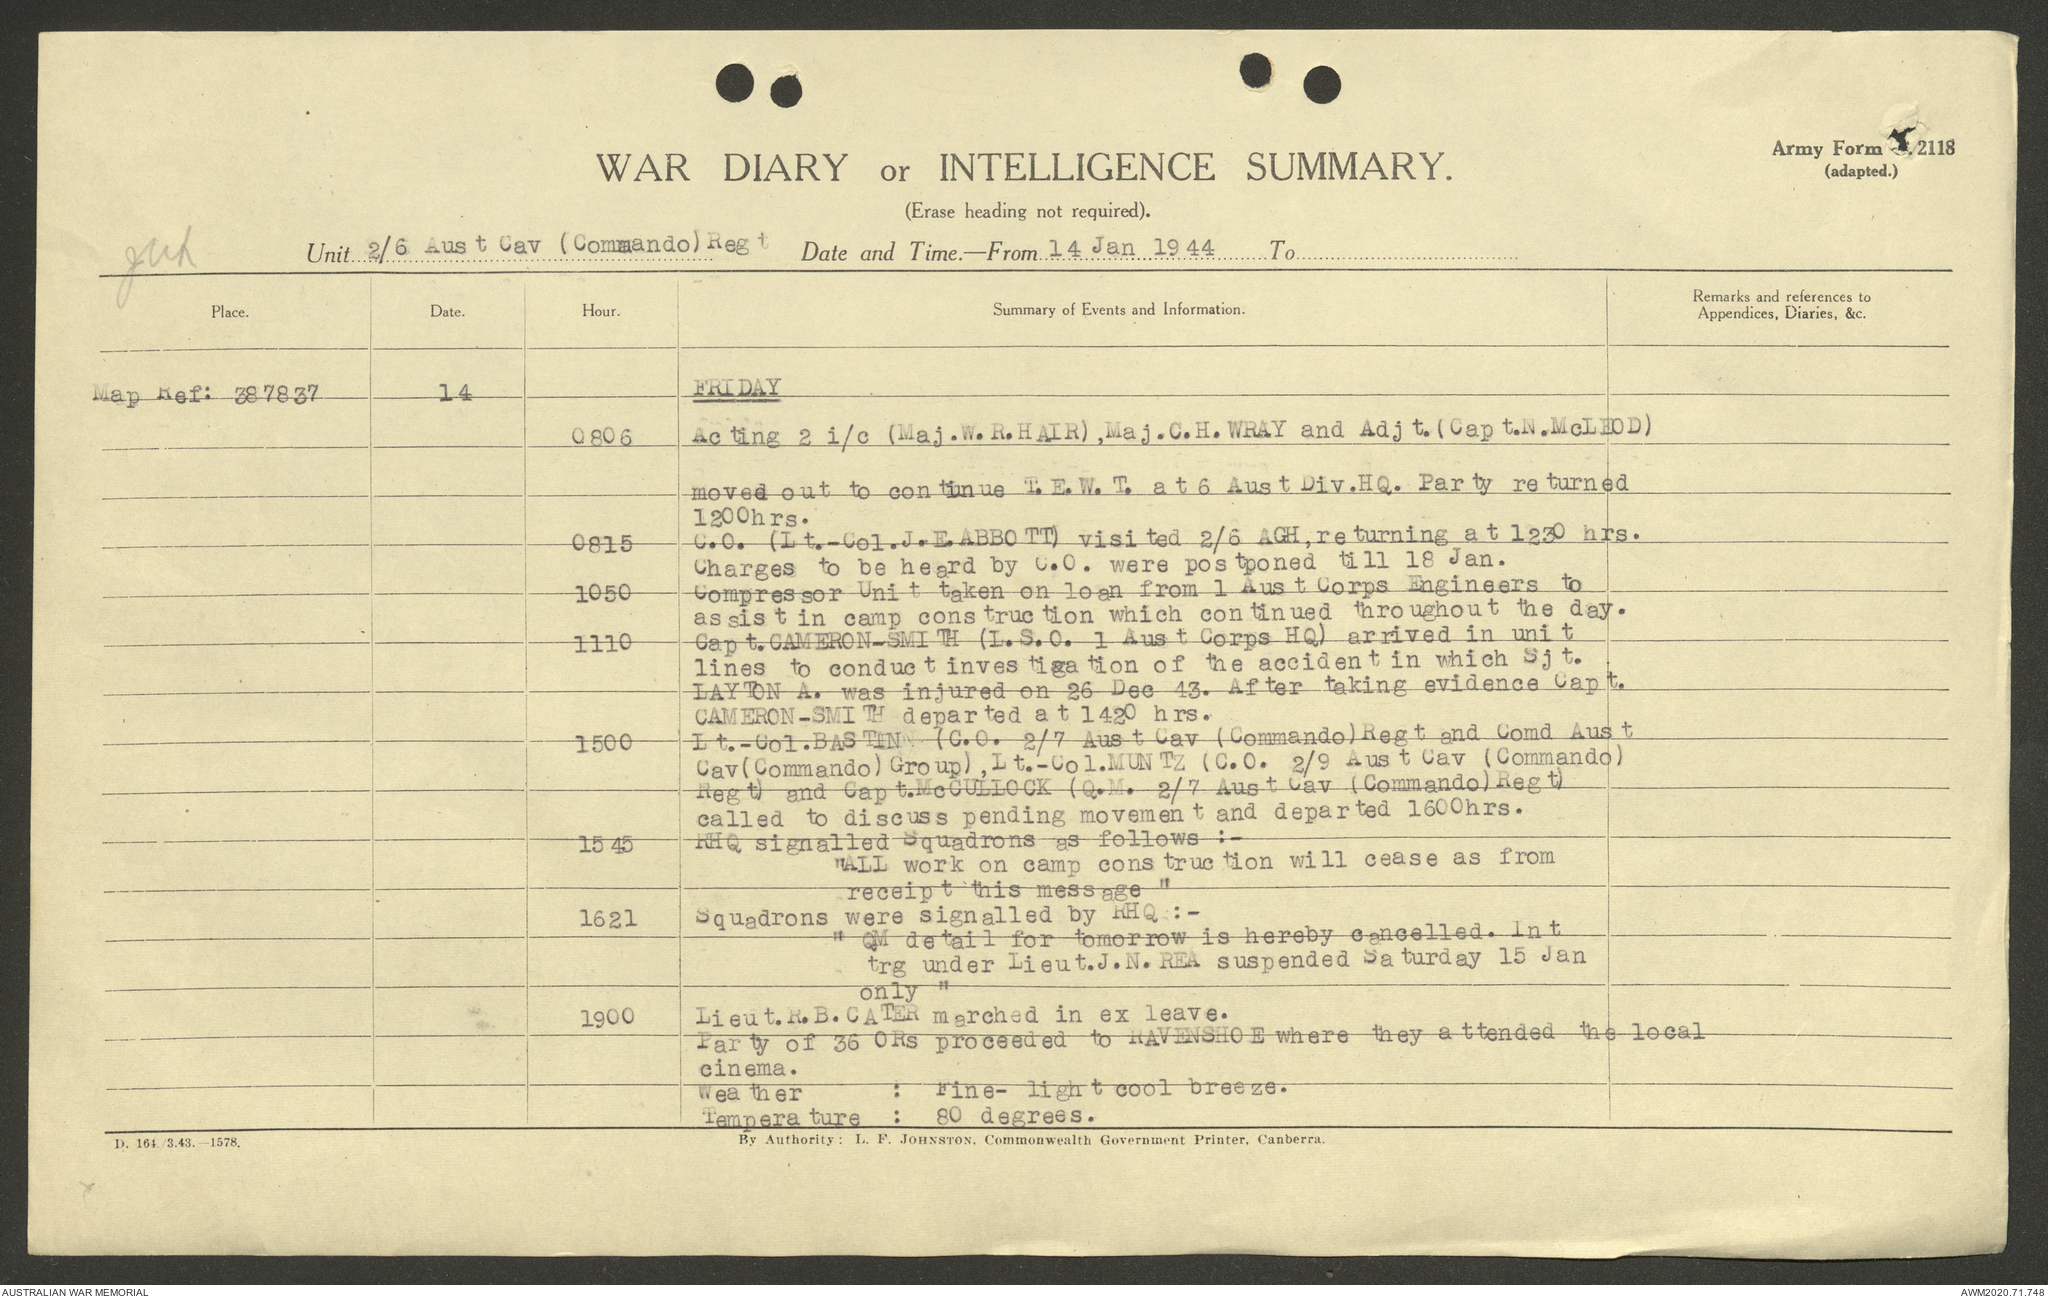 WAR DIARY or INTELLIGENCE SUMMARY.
Army Form 2118
(adapted.)
(Erase heading not required).
Unit 2/6 Aust Cav (Commando) Regt Date and Time.—From 14 Jan 1944 To
Place. Date. Hour. Summary of Events and Information. Remarks and references to
Appendices, Diaries, &c.
Map Ref: 387837 14 FRIDAY
0806 Acting 2 i/c (Maj.W.R.HAIR),Maj.C.H.WRAY and Adjt.(Capt.N.McLEOD)
moved out to continue T.E.W.T. at 6 Aust Div.HQ. Party returned
1200hrs.
0815 C.O. (Lt.-Col.J.E.ABBOTT) visited 2/6 AGH,returning at 1230 hrs.
Charges to be heard by C.O. were postponed till 18 Jan.
1050 Compressor Unit taken on loan from 1 Aust Corps Engineers to
assist in camp construction which continued throughout the day.
1110 Capt.CAMERON-SMITH (L.S.O. 1 Aust Corps HQ) arrived in unit
lines to conduct investigation of the accident in which Sjt.
LAYTON A. was injured on 26 Dec 43. After taking evidence Capt.
CAMERON-SMITH departed at 1420 hrs.
1500 Lt.-Col.BASTINN (C.O. 2/7 Aust Cav (Commando)Regt and Comd Aust
Cav(Commando)Group),Lt.-Col.MUNTZ (C.O. 2/9 Aust Cav (Commando)
Regt) and Capt.McCULLOCK (Q.M. 2/7 Aust Cav (Commando)Regt)
called to discuss pending movement and departed 1600hrs.
1545 RHQ signalled Squadrons as follows :-
"ALL work on camp construction will cease as from
receipt this message "
1621 Squadrons were signalled by RHQ :-
" QM detail for tomorrow is hereby cancelled. Int
trg under Lieut.J.N.REA suspended Saturday 15 Jan
only "
1900 Lieut.R.B.CATER marched in ex leave.
Party of 36 ORs proceeded to RAVENSHOE where they attended the local
cinema.
Weather : Fine- light cool breeze.
Temperature : 80 degrees.
D. 164./3.43.—1578. By Authority: L. F. JOHNSTON, Commonwealth Government Printer, Canberra.
AUSTRALIAN WAR MEMORIAL AWM2020.71.748